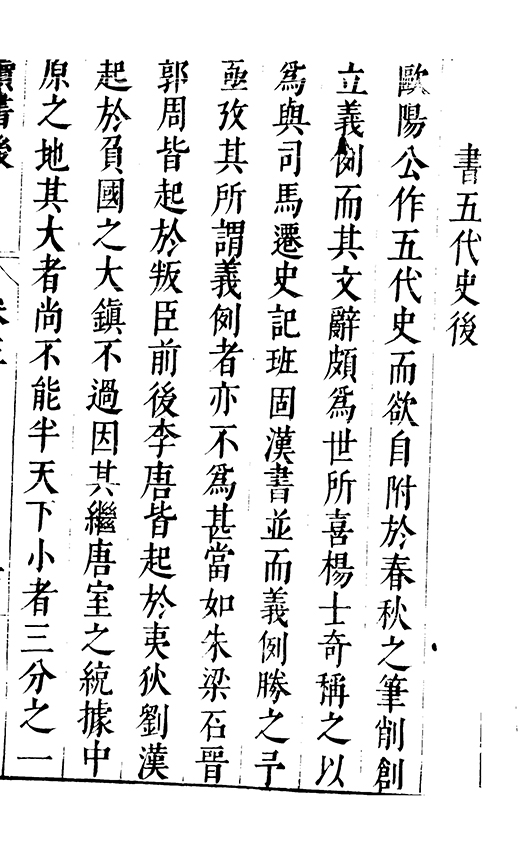 書五代史後
歐陽公作五代史而欲自附於春秋之筆削創
立義例而其文辭頗為世所喜楊士奇稱之以
為與司馬遷史記班固漢書並而義例勝之予
亟攷其所謂義例者亦不為甚當如朱梁石晉
郭周皆起於叛臣前後李唐皆起於夷狄劉漢
起於負國之大鎮不過因其繼唐室之統據中
原之地其大者尚不能半天下小者三分之一
讀書後